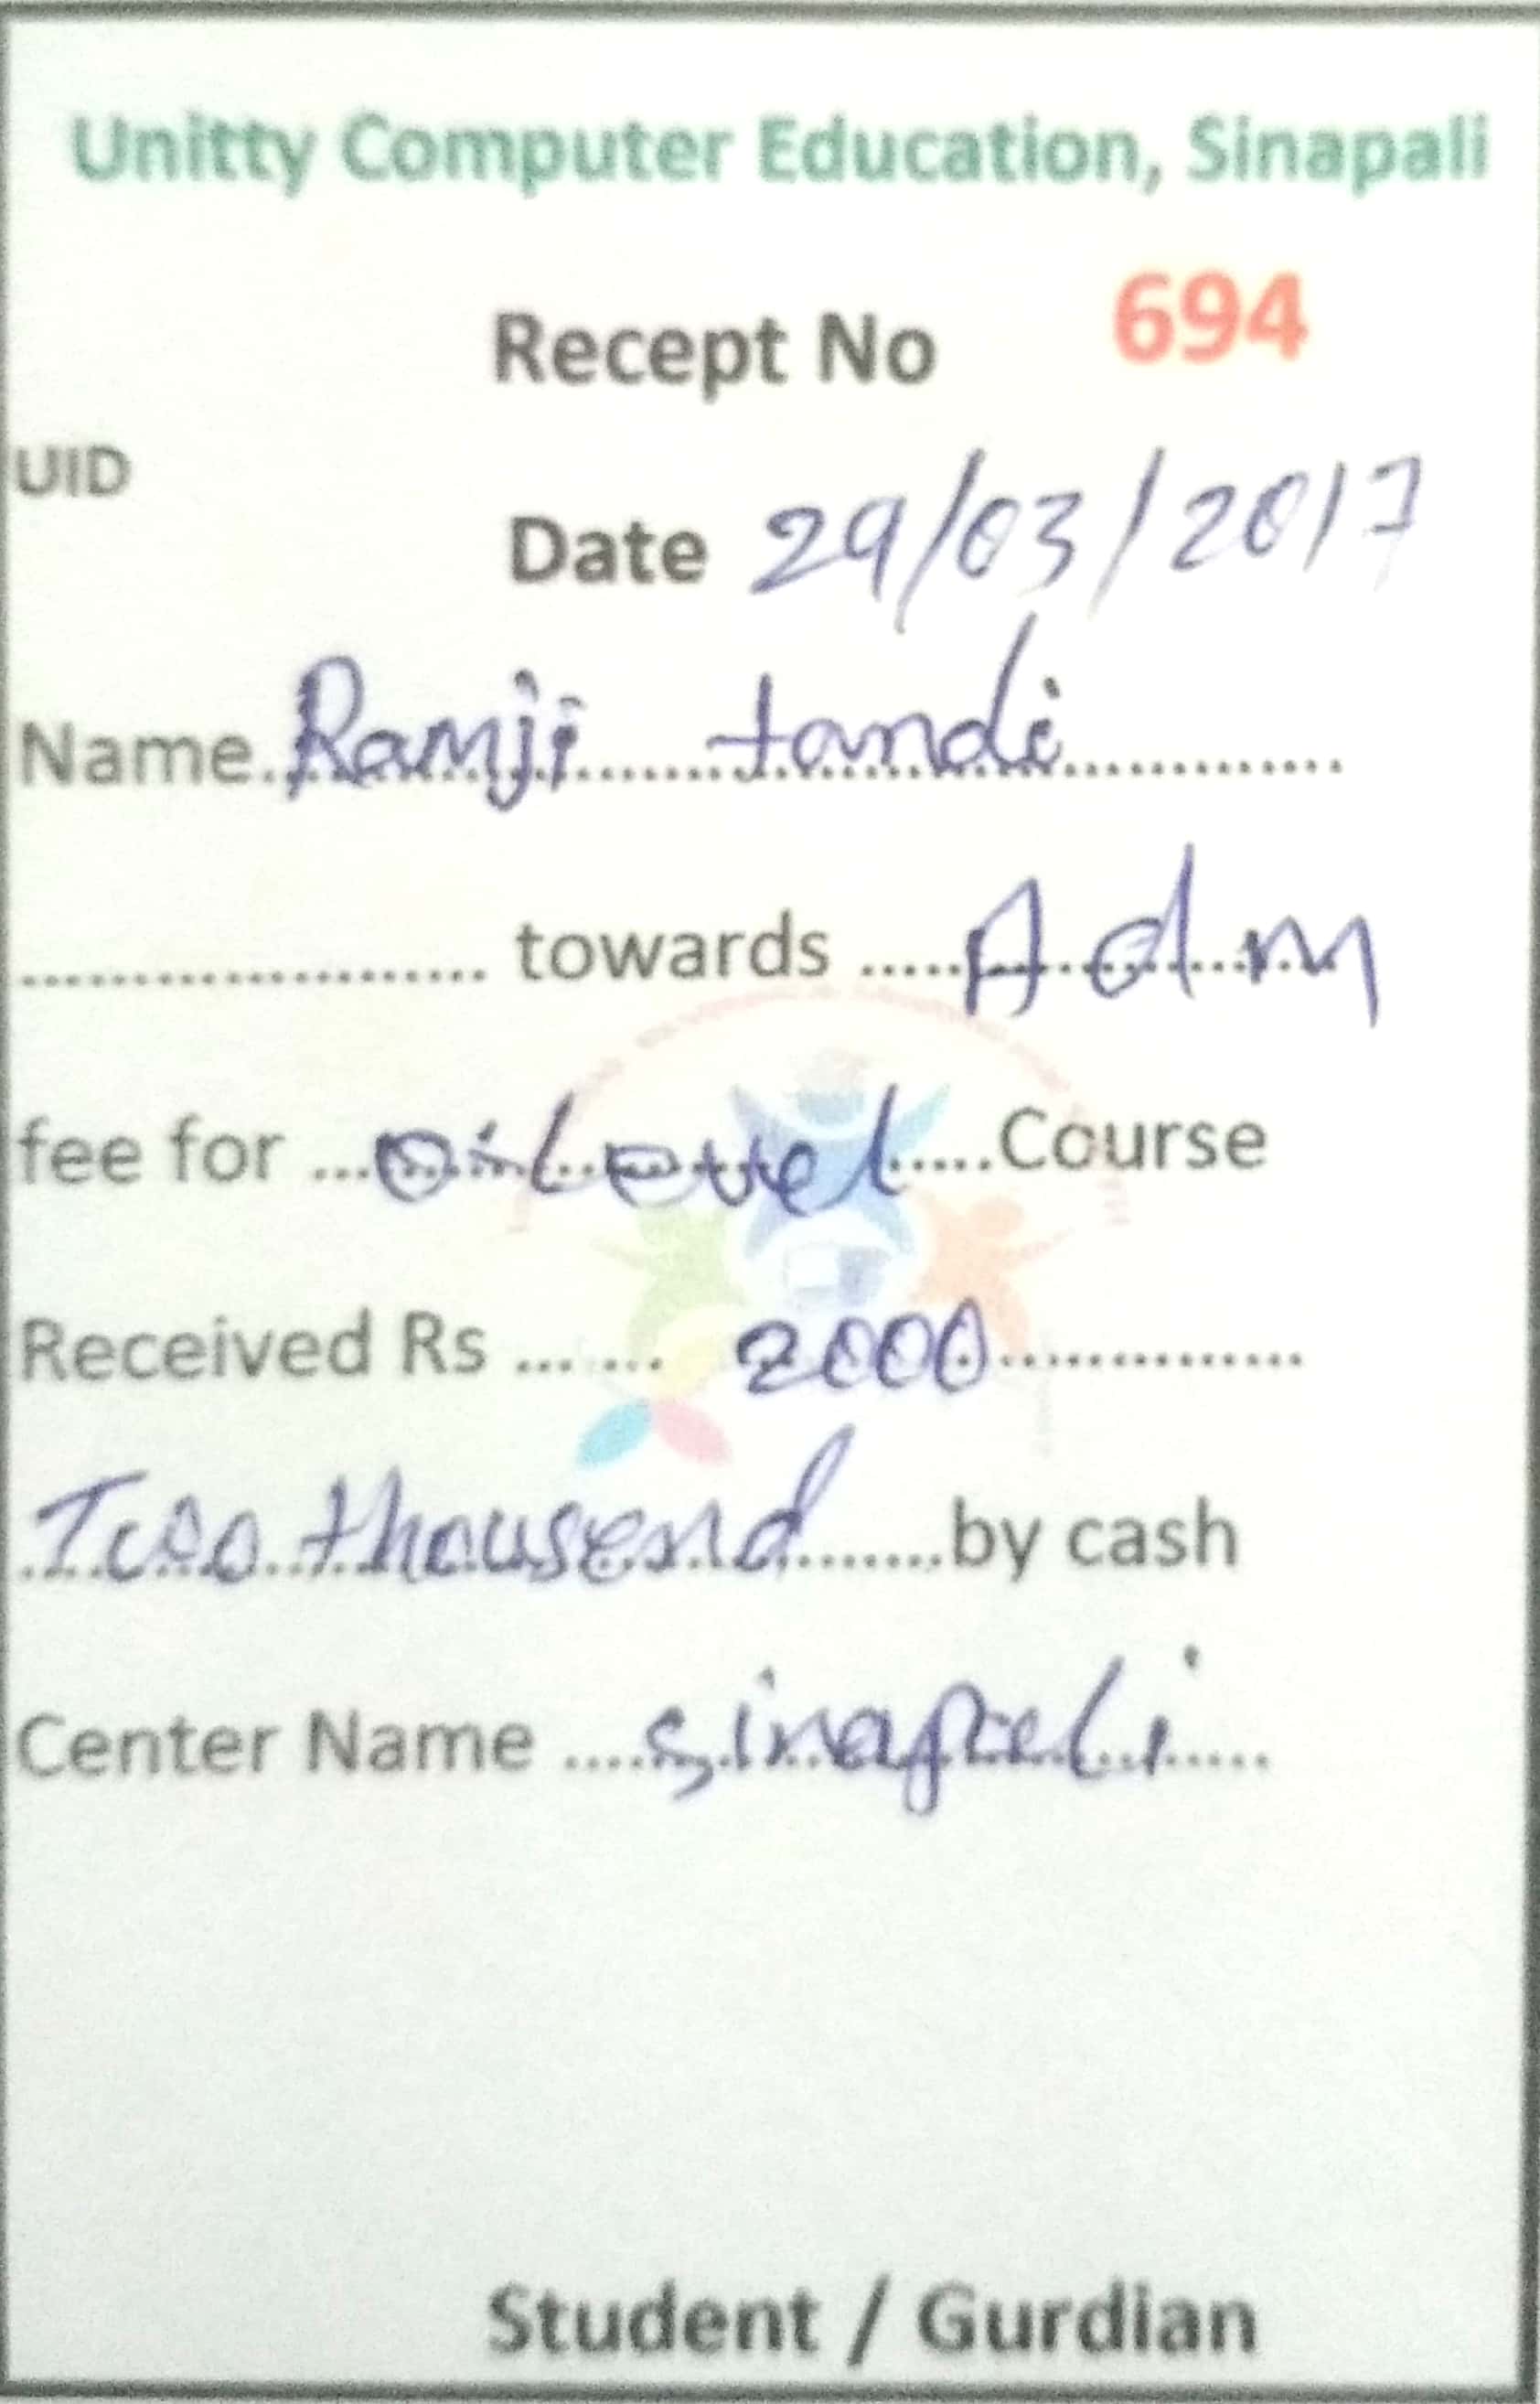 Unitty Computer Education, Sinapali
Recept No 694
UID
Date 29/03/2017
Name Ramji tandi
towards Adm
fee for O Level Course
Received Rs 2000
Two thousend by cash
Center Name Sinapali
Student / Gurdian